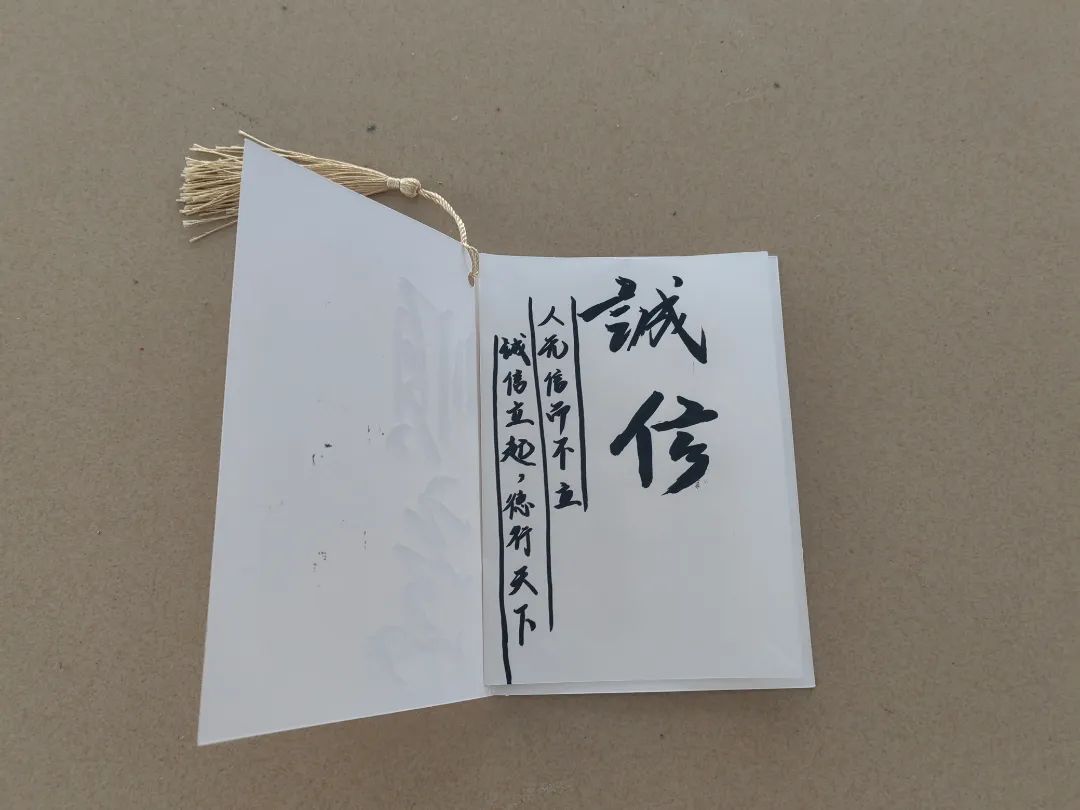 誠信
人无信而不立
誠信立起，德行天下